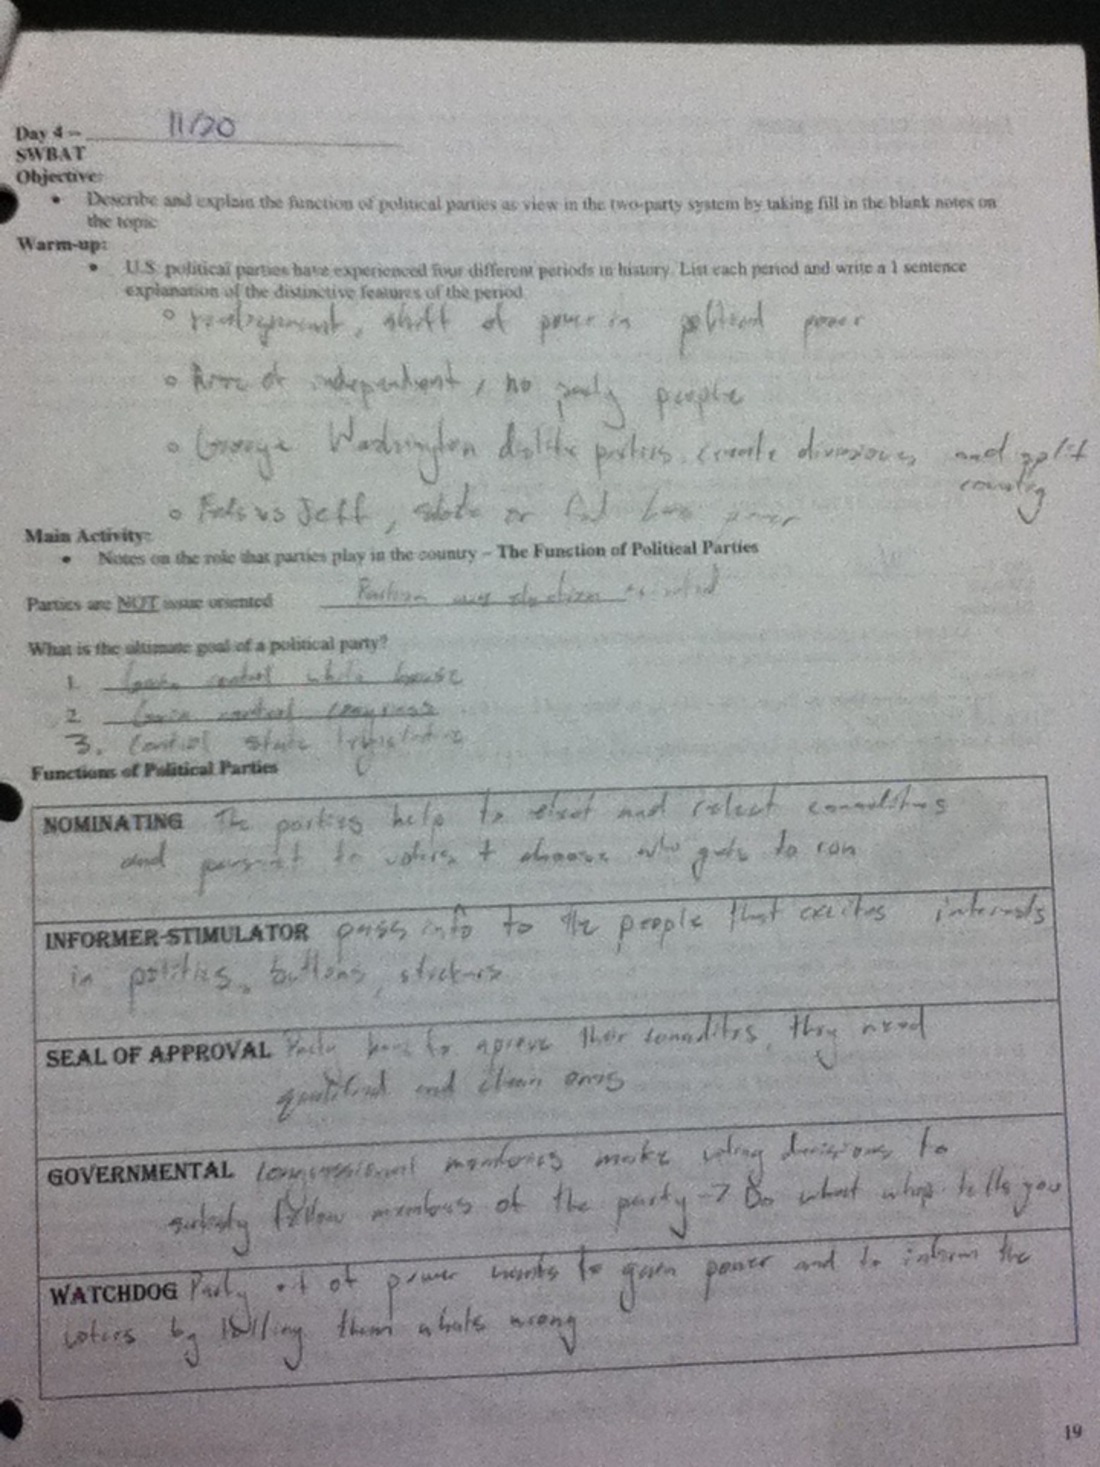 Day 4 – 11/20
SWBAT
Objective:
• Describe and explain the function of political parties as view in the two-party system by taking fill in the blank notes on
the topic
Warm-up:
• U.S. political parties have experienced four different periods in history. List each period and write a 1 sentence
explanation of the distinctive features of the period.
realignment, shift of power in political power
of independent, no party people
George Washington dislike parties, create divisions and split
country
Feds vs Jeff, state or fed power
Main Activity:
• Notes on the role that parties play in the country – The Function of Political Parties
Parties are NOT issue oriented election oriented
What is the ultimate goal of a political party?
1. control white house
2. Gain control congress
3. Control state legislative
Functions of Political Parties
NOMINATING The parties help to and select
and to voters + choose who gets to run
INFORMER-STIMULATOR pass info to the people that excites interests
in politics, buttons, stickers
SEAL OF APPROVAL Party have to aprove their they need
qualified and clean ones
GOVERNMENTAL congressional make voting decisions to
follow members of the party → Do what whip tells you
WATCHDOG Party out of power wants to gain power and to inform the
voters by telling them whats wrong
19